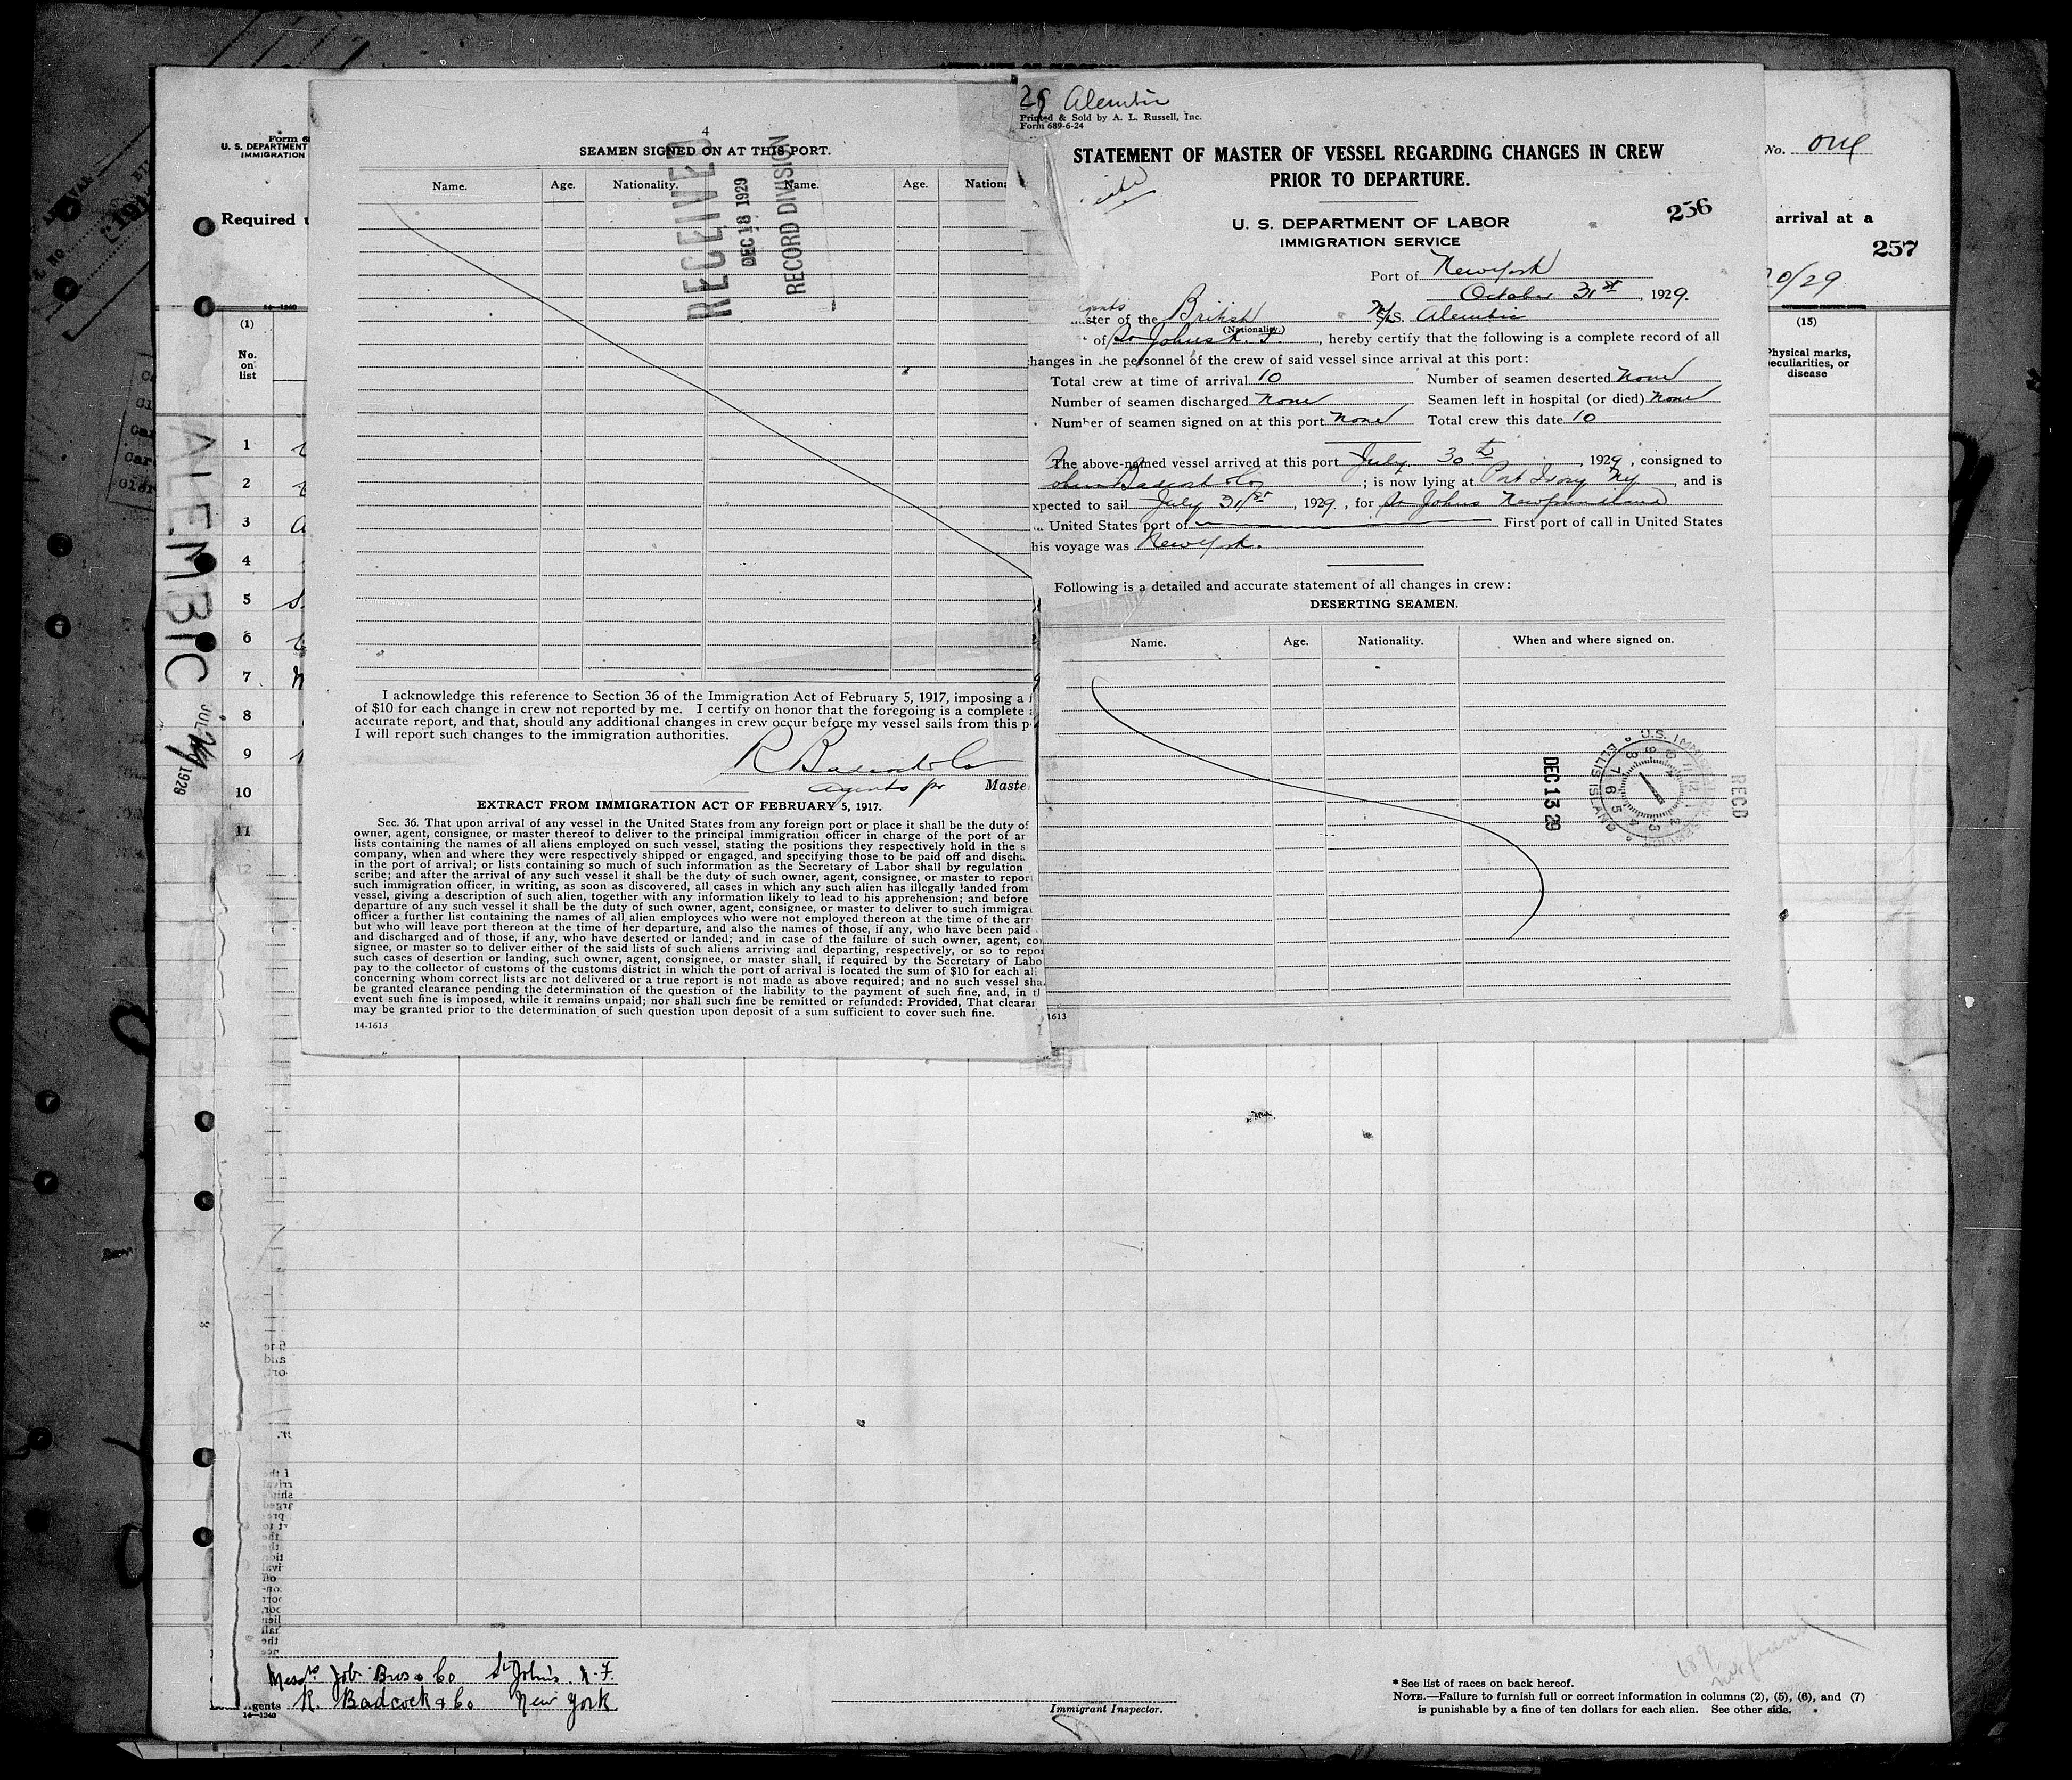 4
SEAMEN SIGNED ON AT THIS PORT.
Name. Age. Nationality. Name. Age. Nationa
RECEIVED
DEC 18 1929
RECORD DIVISION
I acknowledge this reference to Section 36 of the Immigration Act of February 5, 1917, imposing a f
of $10 for each change in crew not reported by me. I certify on honor that the foregoing is a complete a
accurate report, and that, should any additional changes in crew occur before my vessel sails from this p
I will report such changes to the immigration authorities.
R Badcock & Co
agents pr Maste
EXTRACT FROM IMMIGRATION ACT OF FEBRUARY 5, 1917.
Sec. 36. That upon arrival of any vessel in the United States from any foreign port or place it shall be the duty of
owner, agent, consignee, or master thereof to deliver to the principal immigration officer in charge of the port of ar
lists containing the names of all aliens employed on such vessel, stating the positions they respectively hold in the s
company, when and where they were respectively shipped or engaged, and specifying those to be paid off and discha
in the port of arrival; or lists containing so much of such information as the Secretary of Labor shall by regulation
scribe; and after the arrival of any such vessel it shall be the duty of such owner, agent, consignee, or master to repor
such immigration officer, in writing, as soon as discovered, all cases in which any such alien has illegally landed from
vessel, giving a description of such alien, together with any information likely to lead to his apprehension; and before
departure of any such vessel it shall be the duty of such owner, agent, consignee, or master to deliver to such immigra
officer a further list containing the names of all alien employees who were not employed thereon at the time of the arr
but who will leave port thereon at the time of her departure, and also the names of those, if any, who have been paid
and discharged and of those, if any, who have deserted or landed; and in case of the failure of such owner, agent, con
signee, or master so to deliver either of the said lists of such aliens arriving and departing, respectively, or so to repor
such cases of desertion or landing, such owner, agent, consignee, or master shall, if required by the Secretary of Labo
pay to the collector of customs of the customs district in which the port of arrival is located the sum of $10 for each al
concerning whom correct lists are not delivered or a true report is not made as above required; and no such vessel sha
be granted clearance pending the determination of the question of the liability to the payment of such fine, and, in th
event such fine is imposed, while it remains unpaid; nor shall such fine be remitted or refunded: Provided, That clearan
may be granted prior to the determination of such question upon deposit of a sum sufficient to cover such fine.
14-1613
Alembic
Printed & Sold by A. L. Russell, Inc.
Form 689-6-24
STATEMENT OF MASTER OF VESSEL REGARDING CHANGES IN CREW
PRIOR TO DEPARTURE.
U. S. DEPARTMENT OF LABOR
IMMIGRATION SERVICE
256
Port of New York
October 31st, 1929.
ster of the British M/S. Alembic
(Nationality.)
of St Johns N. F., hereby certify that the following is a complete record of all
hanges in the personnel of the crew of said vessel since arrival at this port:
Total crew at time of arrival 10 Number of seamen deserted None
Number of seamen discharged None Seamen left in hospital (or died) None
Number of seamen signed on at this port None Total crew this date 10
The above-named vessel arrived at this port July 30th, 1929, consigned to
Badcock & Co; is now lying at Port Ivory NY, and is
xpected to sail July 31st, 1929., for St Johns Newfoundland
United States port of First port of call in United States
his voyage was New York.
Following is a detailed and accurate statement of all changes in crew:
DESERTING SEAMEN.
Name. Age. Nationality. When and where signed on.
DEC 13 29
U.S. IMMIGRATION SERVICE ELLIS ISLAND
RECD
1613
Form 6
U. S. DEPARTMENT
IMMIGRATION
Required u
14-1240
(1)
No.
on
list
1
2
3
4
5
6
7
8
9
10
11
12
ALEMBIC
JUL 1929
No. one
arrival at a
257
0/29
(15)
Physical marks,
peculiarities, or
disease
Messrs Job Bros & Co St John's. N. F.
gents R. Badcock & Co New York
14-1240
Immigrant Inspector.
* See list of races on back hereof.
NOTE.—Failure to furnish full or correct information in columns (2), (5), (6), and (7)
is punishable by a fine of ten dollars for each alien. See other side.
689
not found